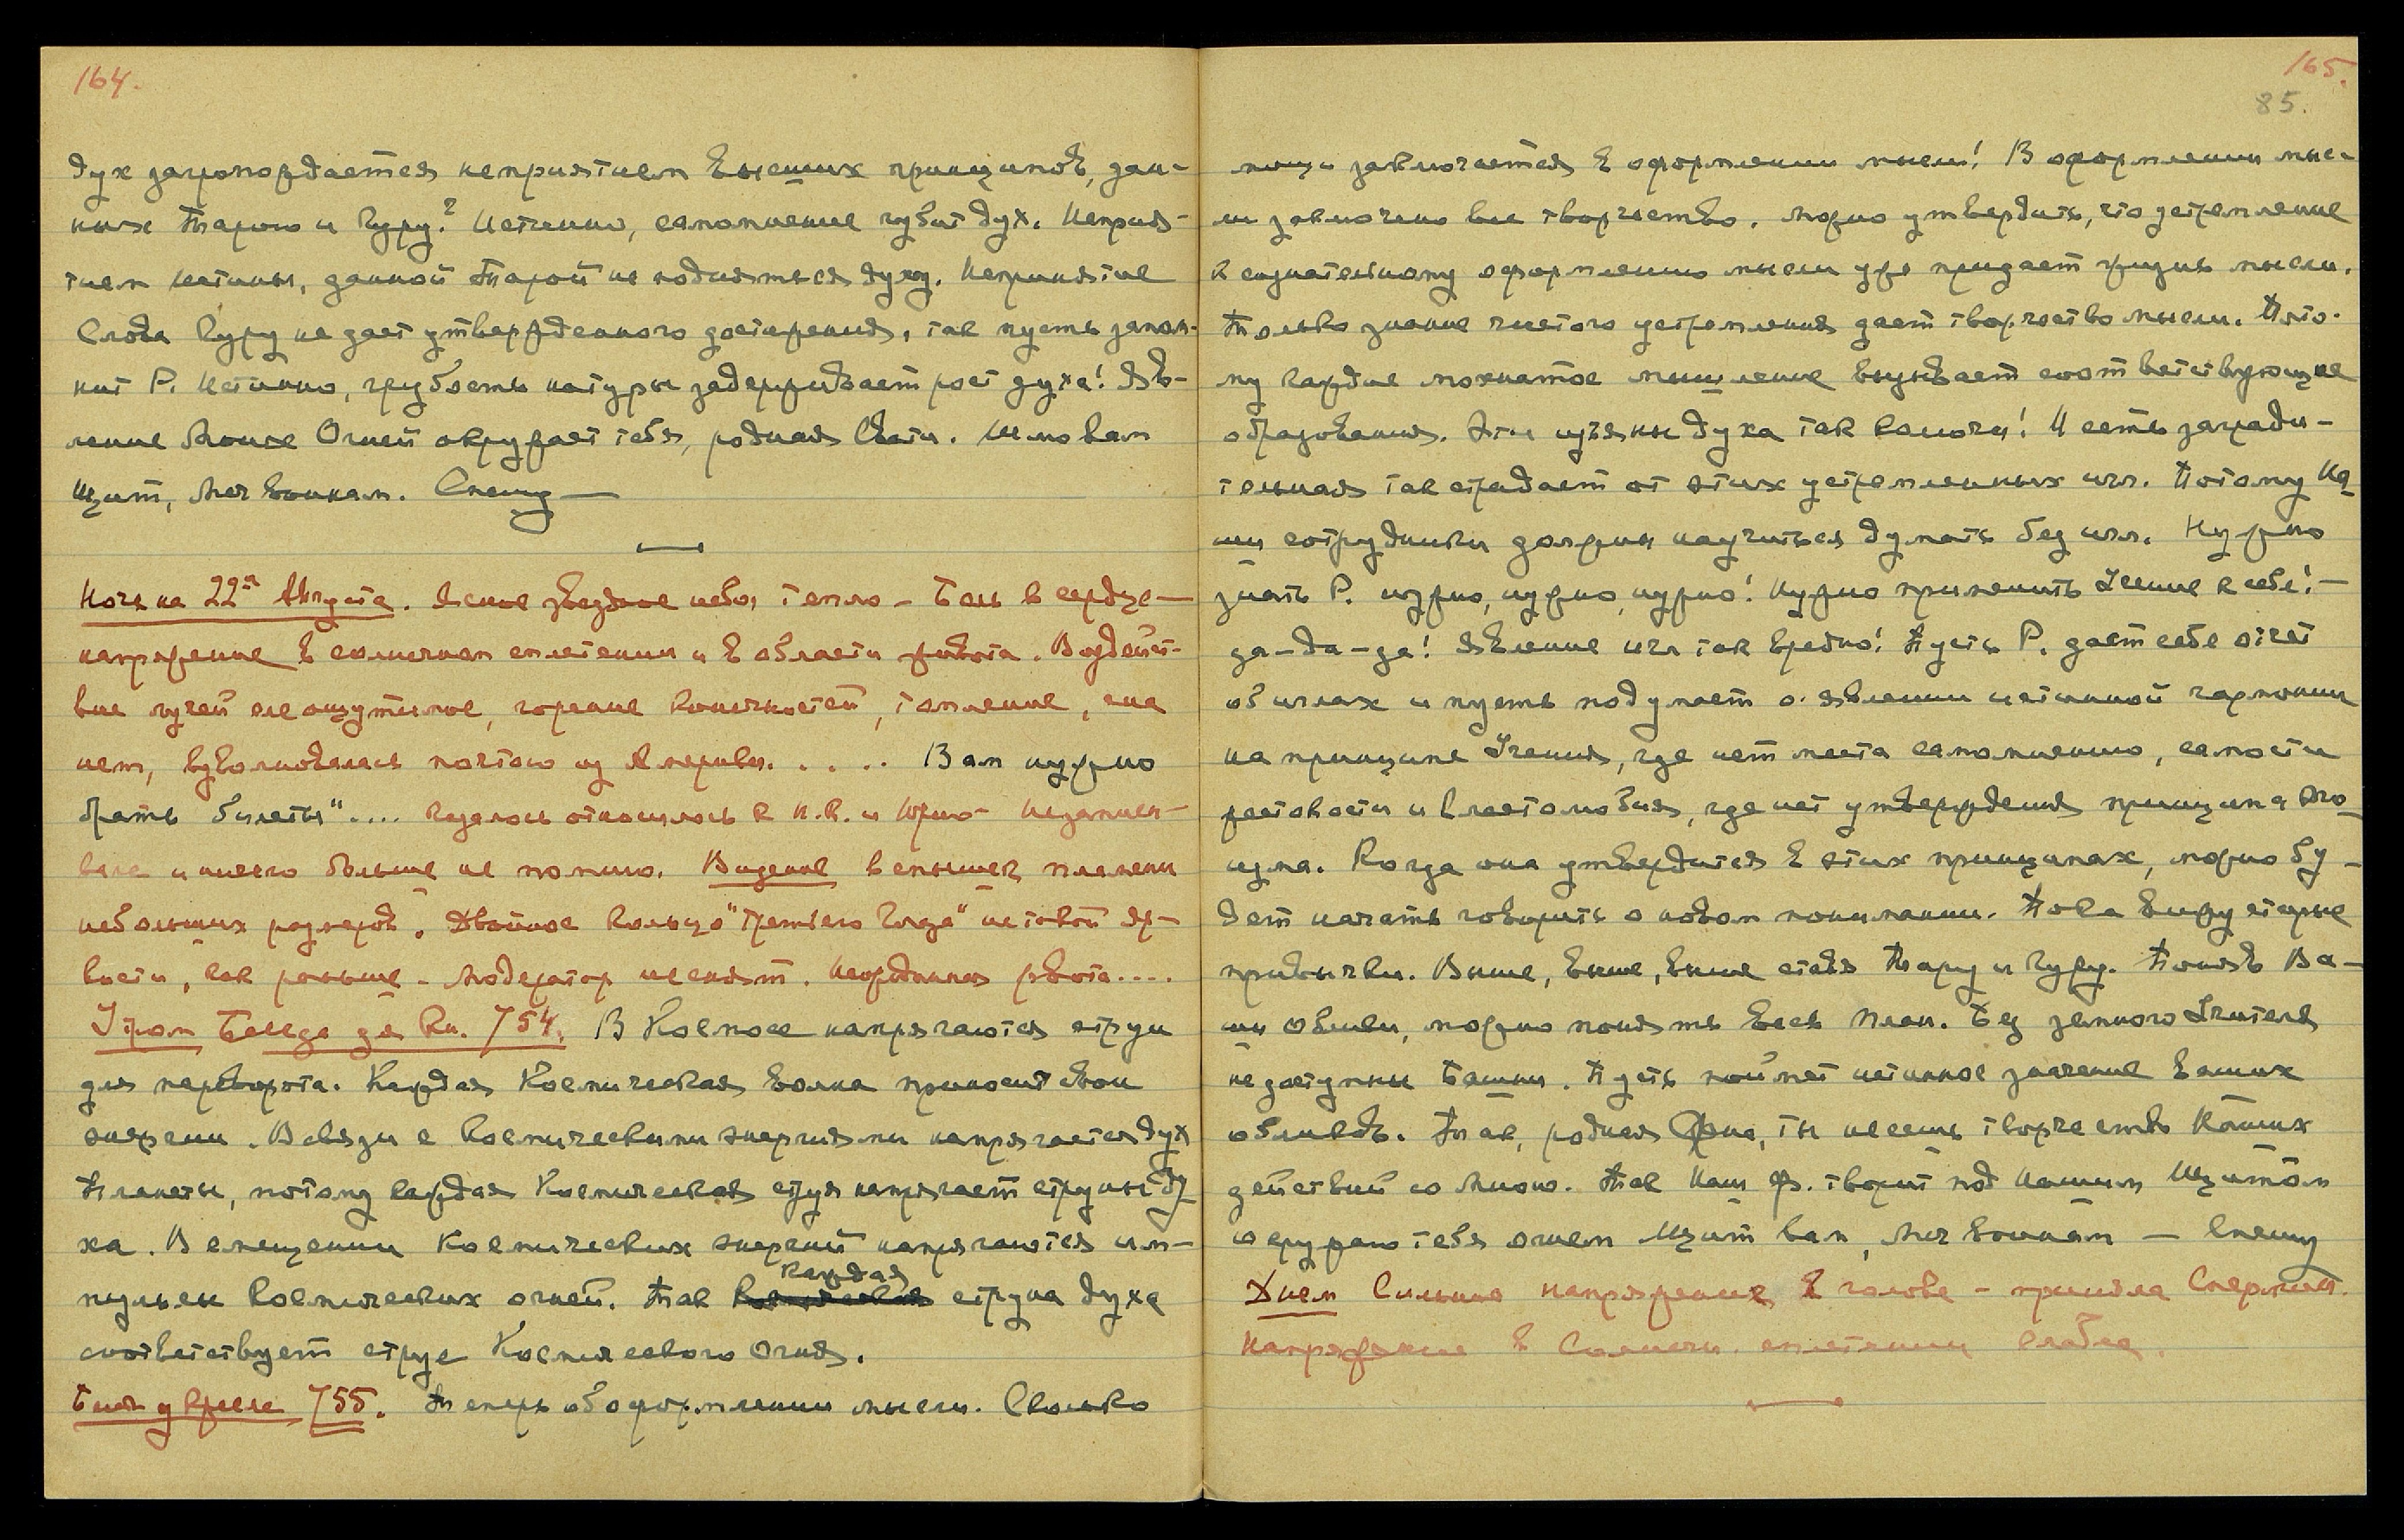 164.
дух загромождается неприятием высших принципов, дан-
ных Тарою и Гуру? Истинно, самомнение губит дух. Неприя-
тием истины, данной Тарой не подняться духу. Непринятие
Слова Гуру не дает утвержденного достижения, так пусть запом-
нит Р. Истинно, грубость натуры задерживает рост духа! Явл-
ление Моих Огней окружает тебя, родная Свати. Шлю вам
Щит, Меч воинам. Спешу —
Ночь на 22ое Августа. Ясное звездное небо, тепло – Боль в сердце —
напряжение в солнечном сплетении и в области живота. Воздейст-
вие лучей не ощутимое, горение конечностей, томление, сна
нет, взволновалась почтою из Америки. . . . . Вам нужно
брать билеты".... казалось относилось к Н.К. и Юрию – Незаписы-
вала и ничего больше не помню. Видение вспышек пламени
небольших размеров. Двойное кольцо "Третьего Глаза" не такой яр-
кости, как раньше – Модератор не снят.
Утром Беседа за Кн. 754. В Космосе напрягаются струи
для переворота. Каждая Космическая волна приносит свои
энергии. В связи с космическими энергиями напрягается дух
планеты, потому каждая Космическая струя напрягает струны ду-
ха. В смещении Космических энергий напрягаются им-
пульсы космических огней. Так каждая струна духа
соответствует струе Космического Огня.
755. Теперь об оформлении мысли. Сколько
165.
85.
мощи заключается в оформлении мысли! В оформлении мыс-
ли заключено все творчество. Можно утвердить, что устремление
к сознательному оформлению мысли уже придает жизнь мысли.
Только знание чистого устремления дает творчество мысли. Пото-
му каждое мохнатое мышление вызывает соответствующие
образования. Эти изъяны духа так колючи! И сеть загради-
тельная так страдает от этих устремленных игл. Потому На-
ши сотрудники должны научиться думать без игл. Нужно
знать Р. нужно, нужно, нужно! Нужно применить Учение к себе! —
да – да – да! Явление игл так вредно! Пусть Р. дает себе отчет
об иглах и пусть подумает о явлении истинной гармонии
на принципе Учения, где нет места самомнению, самости
жестокости и властолюбия, где нет утверждения принципа эго-
изма. Когда она утвердится в этих принципах, можно бу-
дет начать говорить о новом понимании. Пока вижу старые
привычки. Выше, выше, выше ставя Тару и Гуру. Поняв Ва-
ши облики, можно понять весь План. Без земного Учителя
недоступны Башни. Пусть поймет истинное значение ваших
обликов. Так, родная, ты несешь творчество Наших
действий со Мною. Так Наш Ф. творит под Нашим Щитом
окружаю тебя огнем Щит вам, Меч воинам — Спешу
Днем Сильное напряжение в голове – приняла
Напряжение в Солнечн. сплетении слабее.